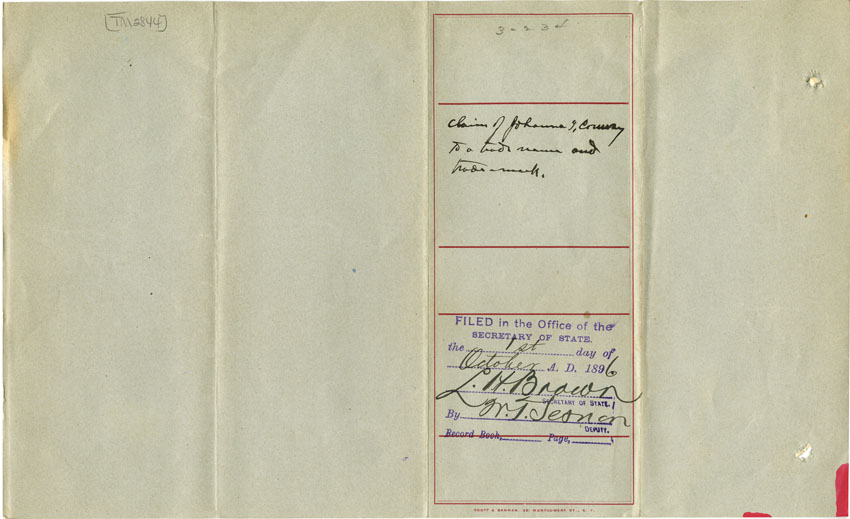 TM2844
3-234
Claim of Johanna I, Conway
to a trade name and
trade-mark.
FILED in the Office of the
SECRETARY OF STATE.
the 1st day of
October A. D. 1896
L. H. Brown
SECRETARY OF STATE.
By
DEPUTY.
Record Book, Page,
MONTGOMERY ST., S. F.